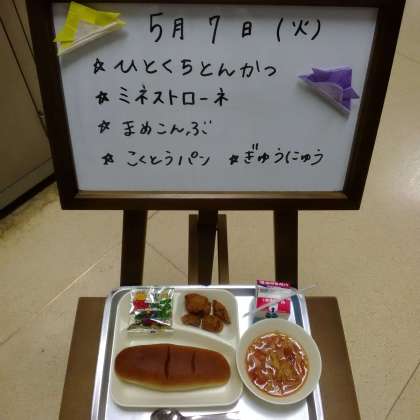 5月7日(火)
☆ひとくちとんかつ
☆ミネストローネ
☆まめこんぶ
☆こくとうパン ☆ぎゅうにゅう